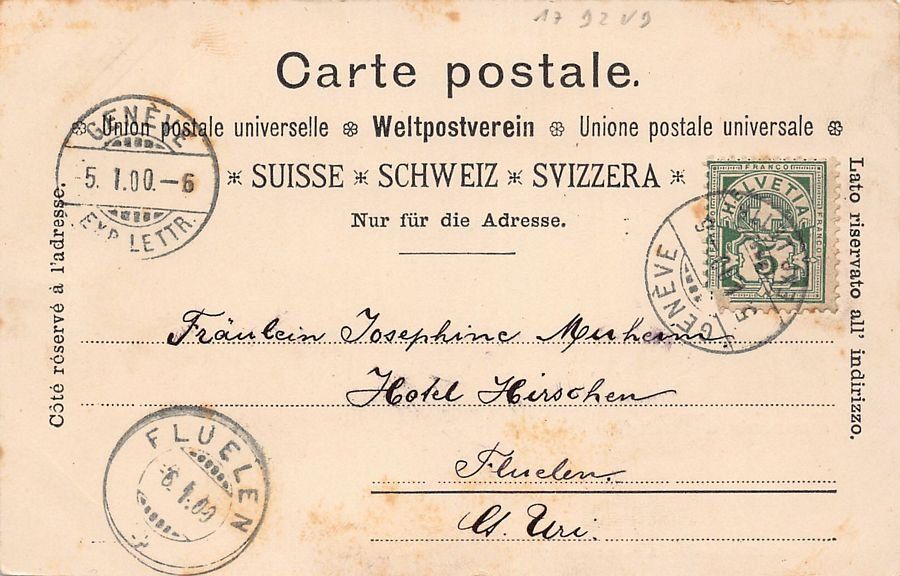 17 92 V9
Carte postale.
❊ Union postale universelle ❊ Weltpostverein ❊ Unione postale universale ❊
* SUISSE * SCHWEIZ * SVIZZERA *
Nur für die Adresse.
Côté réservé à l'adresse.
Lato riservato all' indirizzo.
GENÈVE
5. I.00.-6
EXP. LETTR.
FRANCO
HELVETIA
5
GENÈVE
Fräulein Josephine Muheim
Hotel Hirschen
Fluelen.
Ct. Uri.
FLUELEN
6.I.00